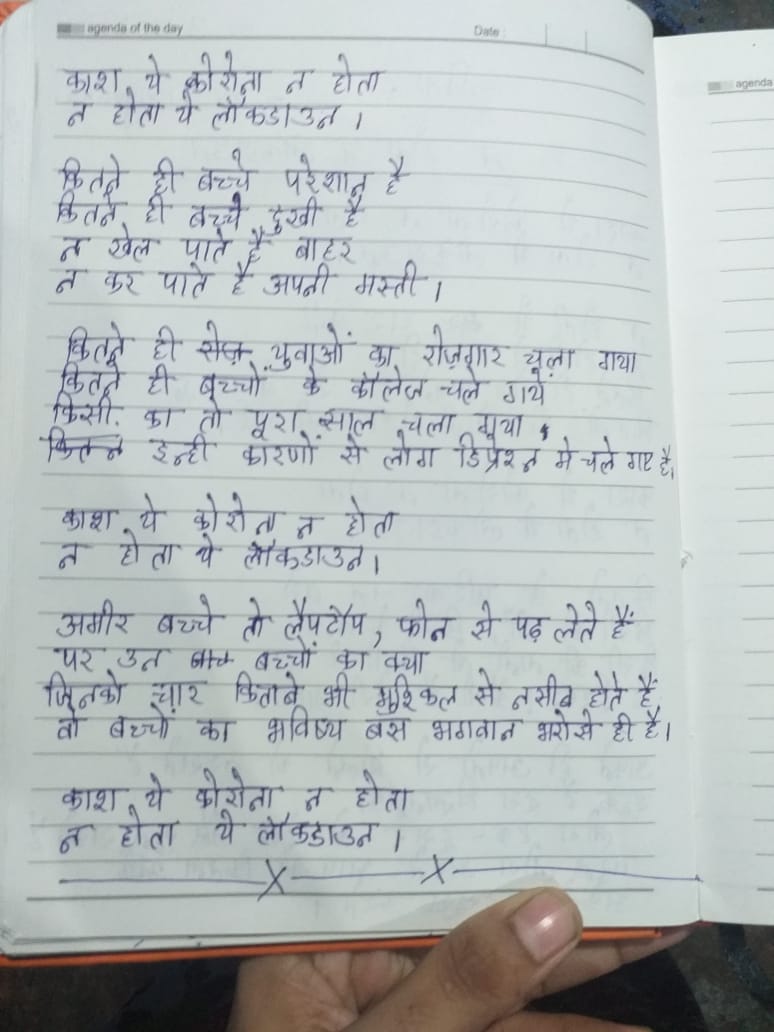 agenda of the day
Date :
agenda
काश ये कोरोना न होता
न होता ये लॉकडाउन ।
कितने ही बच्चे परेशान है
कितने ही बच्चे दुखी है
न खेल पाते है बाहर
न कर पाते है अपनी मस्ती ।
कितने ही युवाओं का रोज़गार चला गया
कितने ही बच्चों के कॉलेज चले गये
किसी का तो पूरा साल चला गया
इन्ही कारणों से लोग डिप्रेशन मे चले गए है।
काश ये कोरोना न होता
न होता ये लॉकडाउन ।
अमीर बच्चे तो लैपटॉप, फोन से पढ़ लेते हैं
पर उन बच्चों का क्या
जिनको चार किताबे भी मुश्किल से नसीब होते हैं
वो बच्चों का भविष्य बस भगवान भरोसे ही है।
काश ये कोरोना न होता
न होता ये लॉकडाउन ।